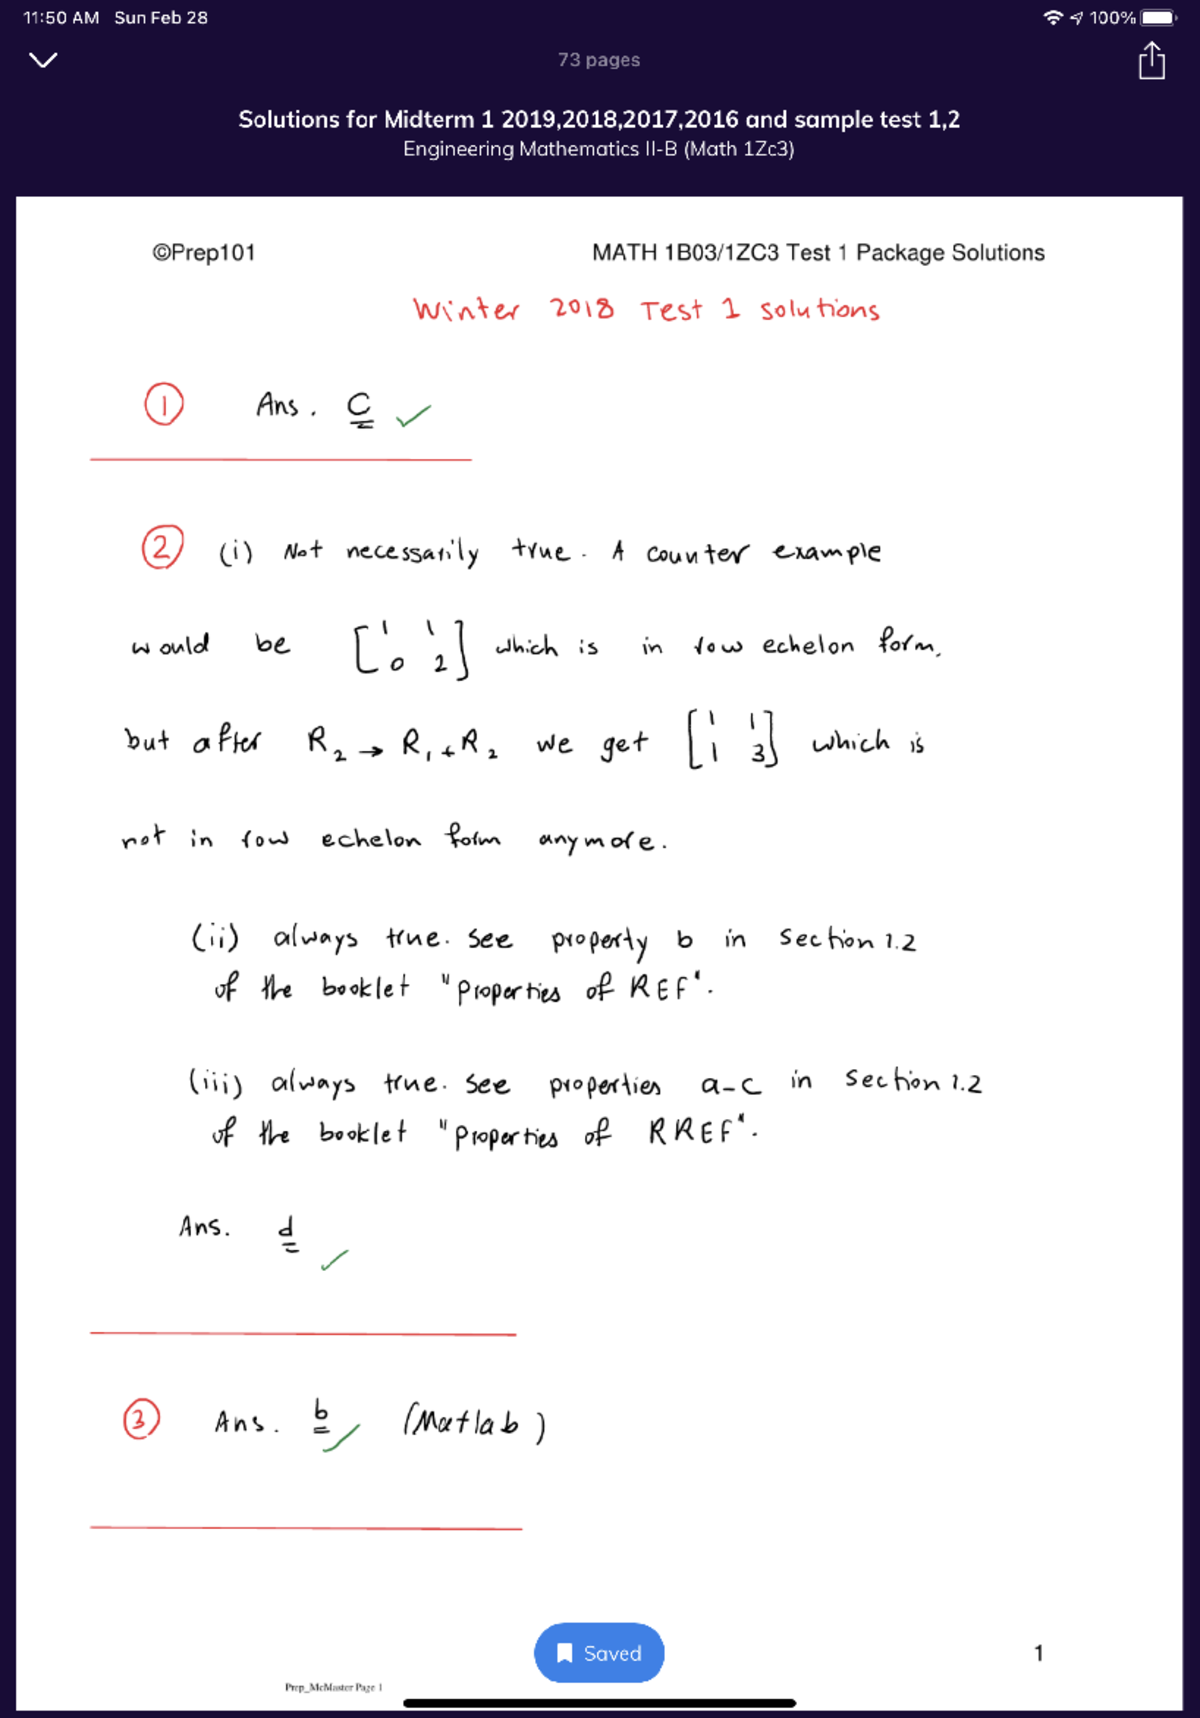 11:50 AM Sun Feb 28 100%
73 pages
Solutions for Midterm 1 2019,2018,2017,2016 and sample test 1,2
Engineering Mathematics II-B (Math 1Zc3)
©Prep101 MATH 1B03/1ZC3 Test 1 Package Solutions
Winter 2018 Test 1 solutions
① Ans. c ✓
② (i) Not necessarily true. A counter example
would be [1 1; 0 2] which is in row echelon form,
but after R₂ → R₁ + R₂ we get [1 1; 1 3] which is
not in row echelon form anymore.
(ii) always true. See property b in section 1.2
of the booklet "Properties of REF".
(iii) always true. See properties a-c in section 1.2
of the booklet "Properties of RREF".
Ans. d ✓
③ Ans. b ✓ (Matlab)
Saved
1
Prep_McMaster Page 1